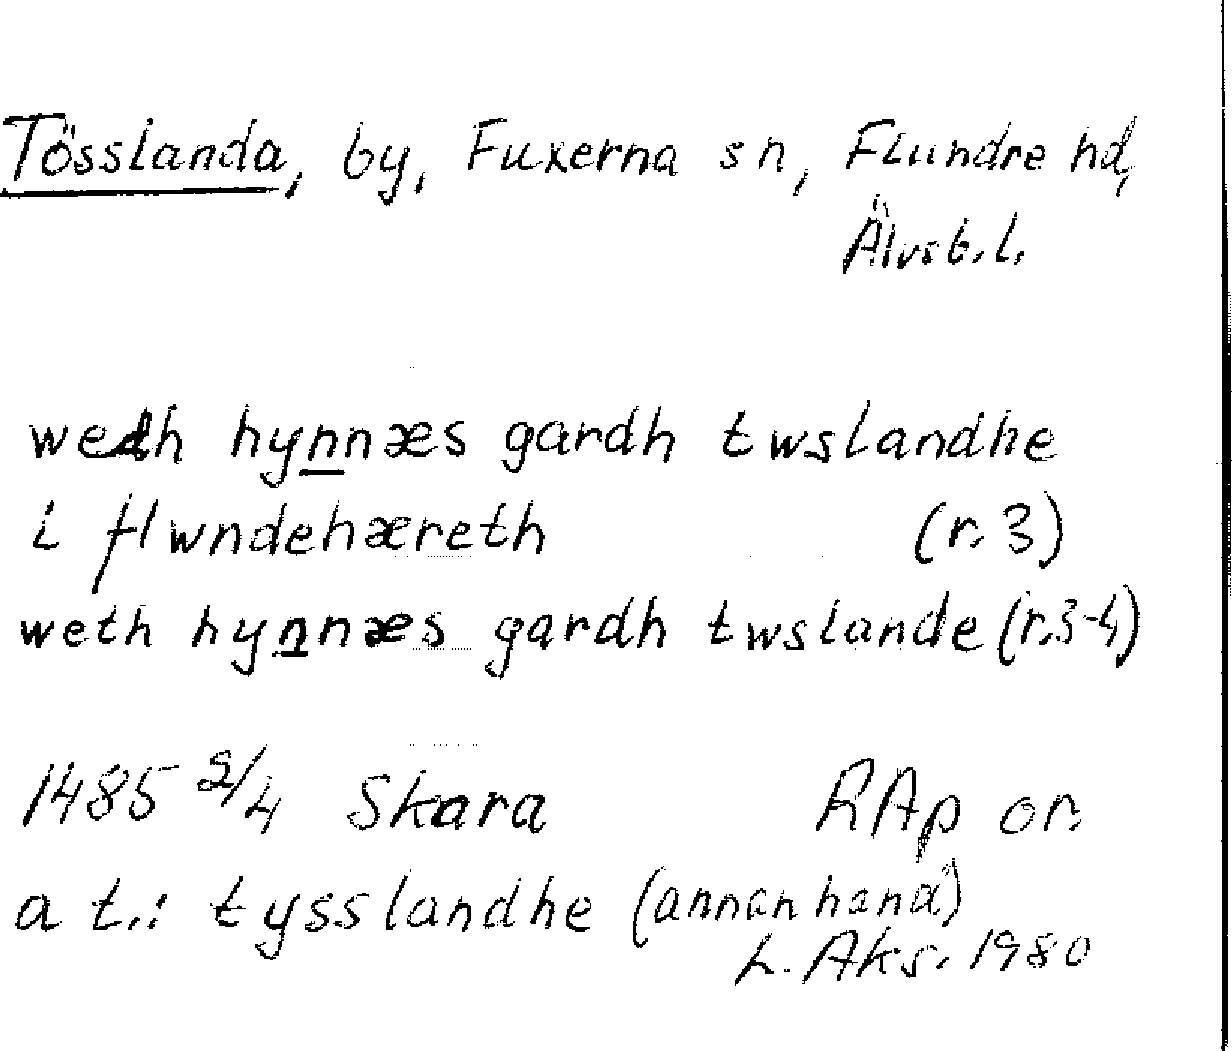 Tösslanda, by, Fuxerna sn, Flundre hd,
Älvsb. l.
wedh hynnæs gardh twslandhe
i flwndehæreth (r. 3)
weth hynnæs gardh twslande (r. 3-4)
1485 2/4 Skara RAp or.
a t.: tysslandhe (annan hand)
L. Aks. 1980